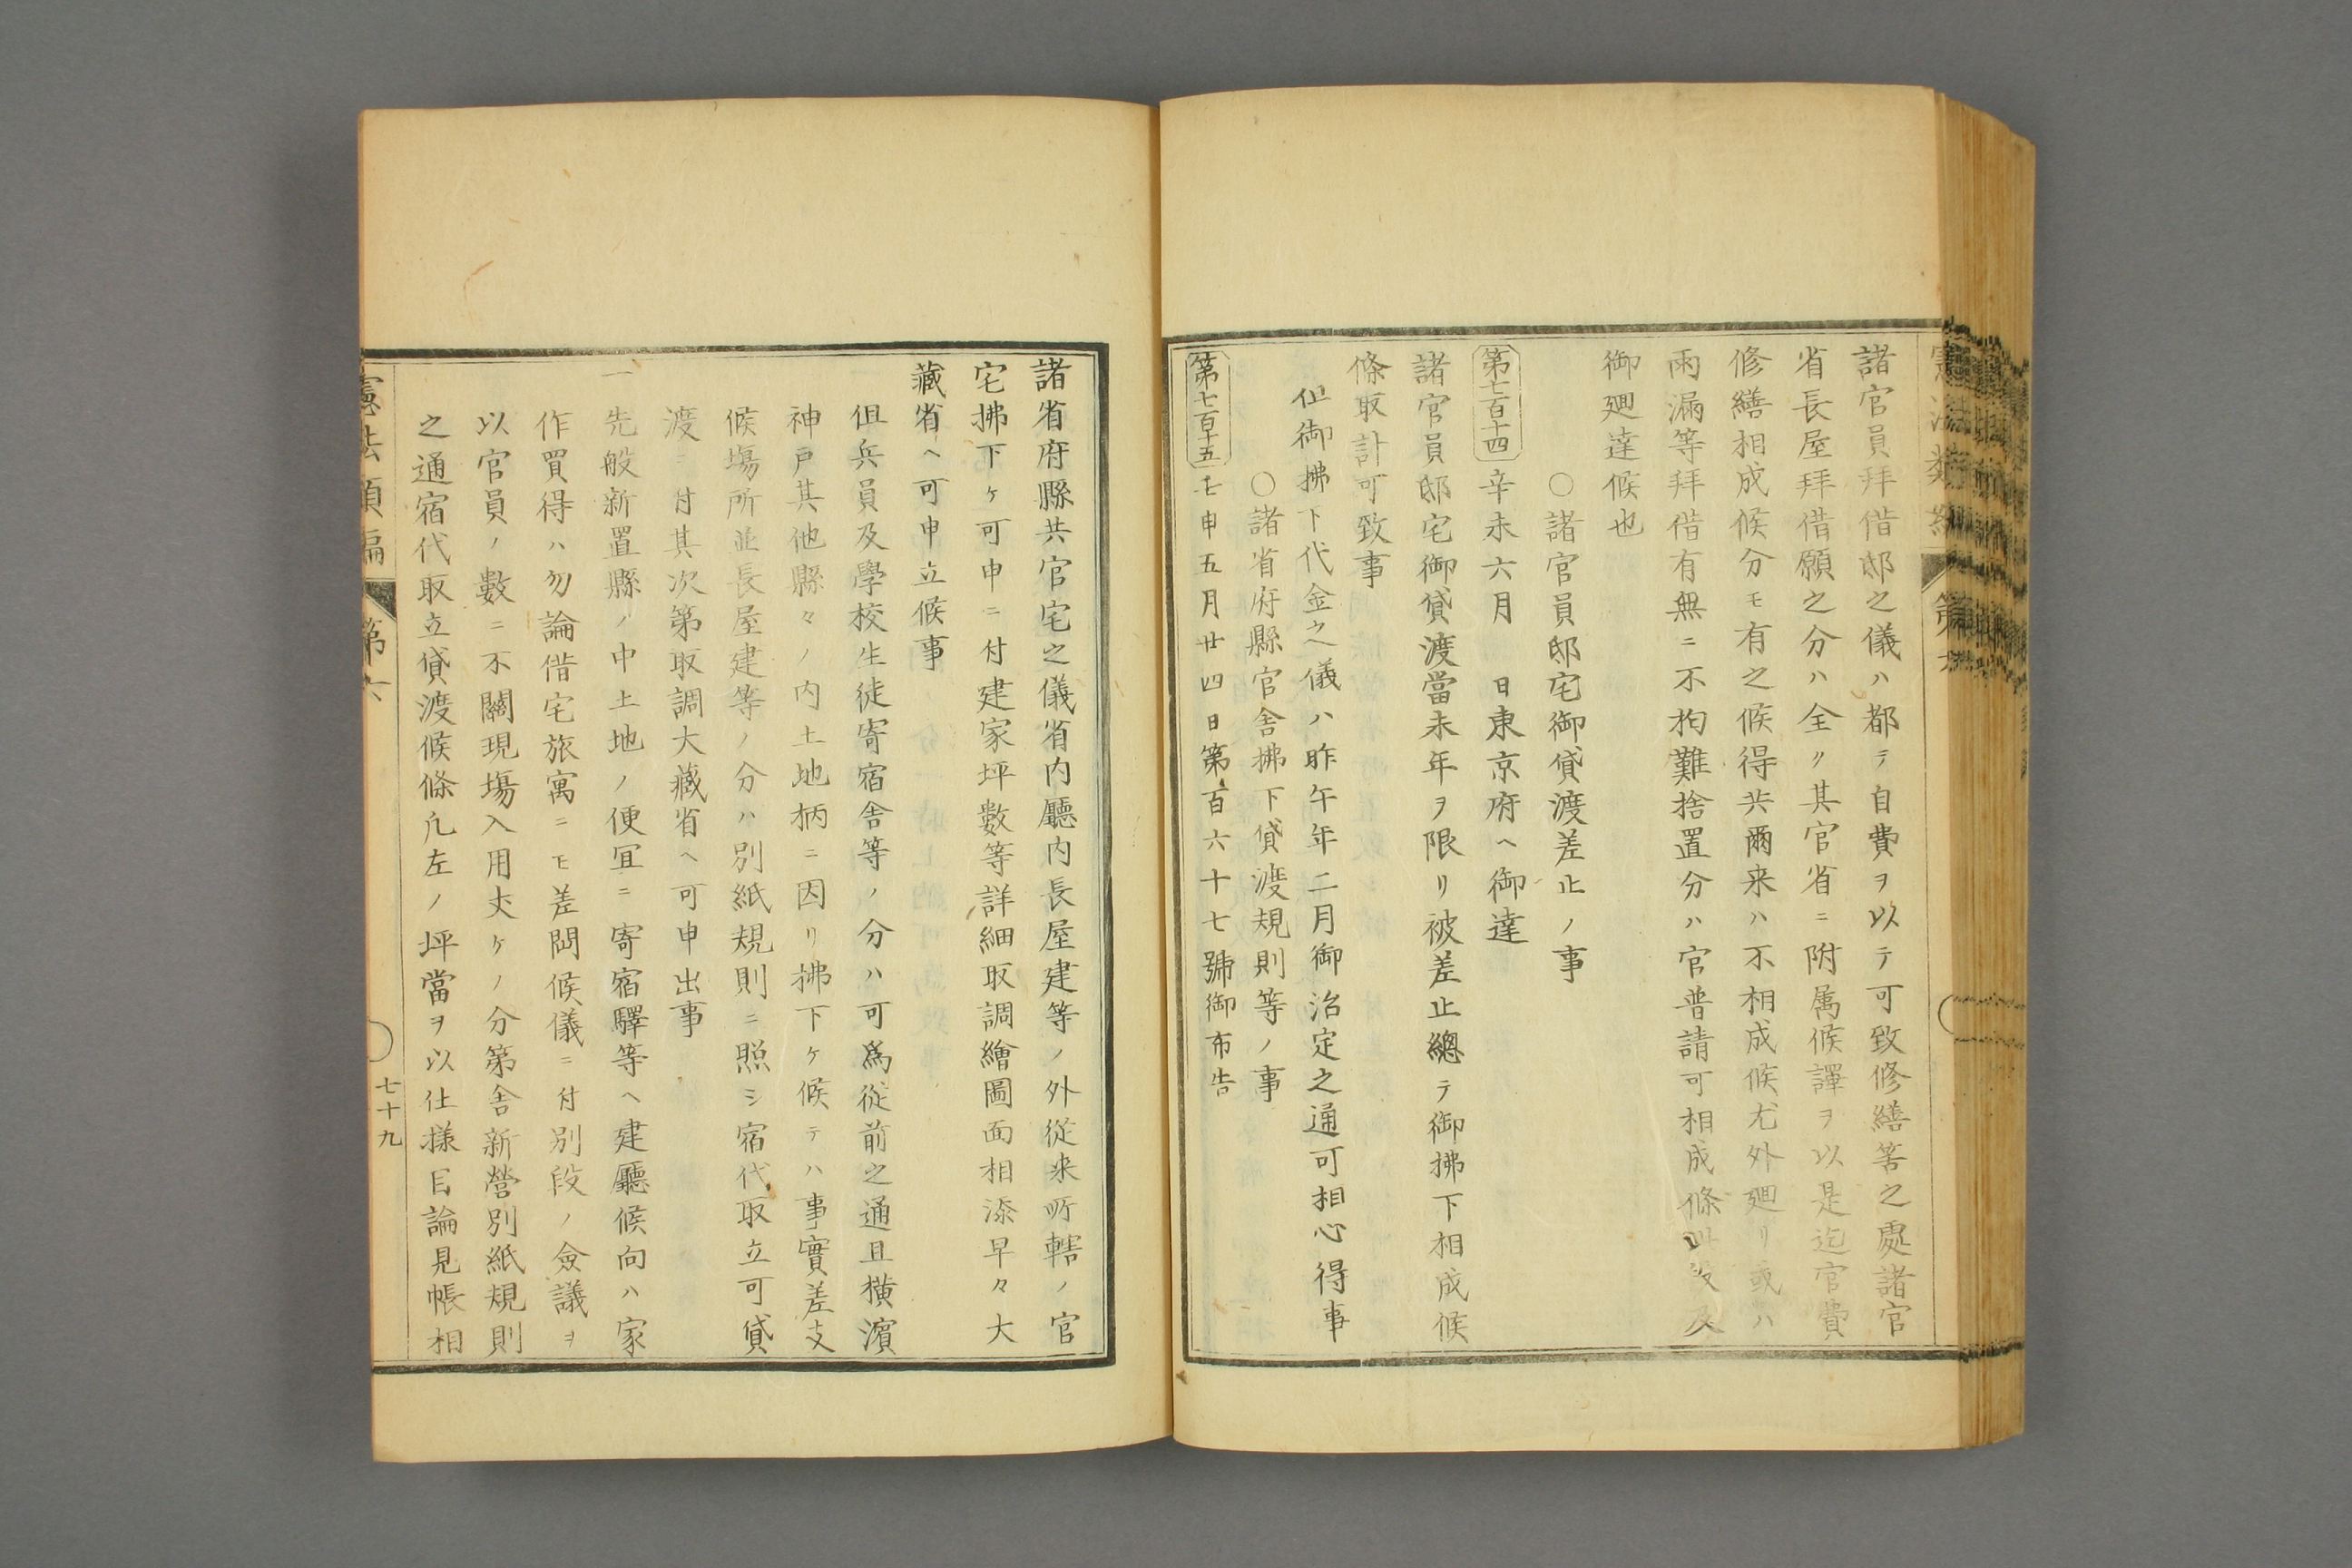 諸官員拜借邸之儀ハ都テ自費ヲ以テ可致修繕筈之處諸官
省長屋拜借願之分ハ全ク其官省ニ附属候譯ヲ以是迄官費
修繕相成候分モ有之候得共爾来ハ不相成候尤外廻リ或ハ
雨漏等拜借有無ニ不拘難捨置分ハ官普請可相成條此段及
御廻達候也
○諸官員邸宅御貸渡差止ノ事
第七百十四 辛未六月 日東京府ヘ御達
諸官員邸宅御貸渡當未年ヲ限リ被差止總テ御拂下相成候
條取計可致事
但御拂下代金之儀ハ昨午年二月御治定之通可相心得事
○諸省府縣官舎拂下貸渡規則等ノ事
第七百十五 壬申五月廿四日第百六十七號御布告
諸省府縣共官宅之儀省内廳内長屋建等ノ外從来所轄ノ官
宅拂下ケ可申ニ付建家坪數等詳細取調繪圖面相添早々大
藏省ヘ可申立候事
但兵員及學校生徒寄宿舎等ノ分ハ可爲從前之通且横濱
神戸其他縣々ノ内土地柄ニ因リ拂下ケ候テハ事實差支
候塲所並長屋建等ノ分ハ別紙規則ニ照シ宿代取立可貸
渡ニ付其次第取調大藏省ヘ可申出事
一先般新置縣ノ中土地ノ便冝ニ寄宿驛等ヘ建廳候向ハ家
作買得ハ勿論借宅旅寓ニモ差閊候儀ニ付別段ノ僉議ヲ
以官員ノ數ニ不關現塲入用丈ケノ分第舎新營別紙規則
之通宿代取立貸渡候條凡左ノ坪當ヲ以仕様目論見帳相
憲法類編 第六 七十九